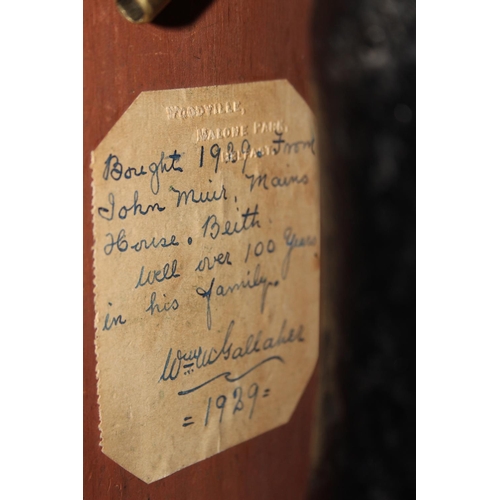 WOODVILLE,
MALONE PARK,
BELFAST.
Bought 1929. From
John Muir, Mains
House. Beith.
Well over 100 Years
in his family.
Wm McGallaher
= 1929 =